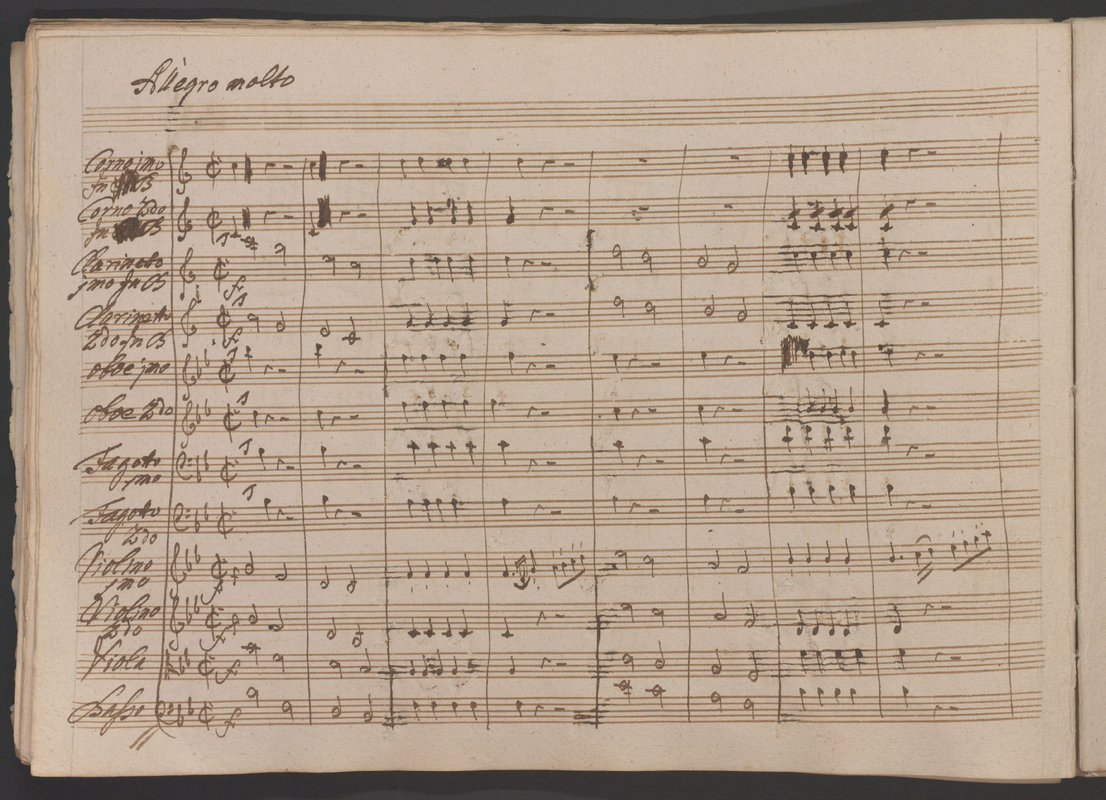 Allegro molto
Corno jmo
Jn B
Corno 2do
Jn B
Clarineto
jmo Jn B
Clarineto
2do Jn B
oboe jmo
oboe 2do
Fagoto
jmo
Fagoto
2do
Violino
jmo
Violino
2do
Viola
Basso